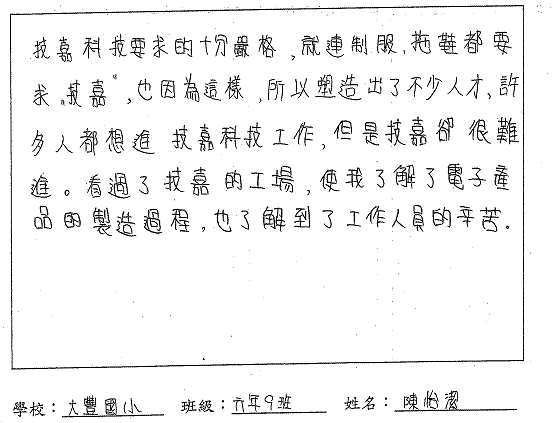 技嘉科技要求的十分嚴格,就連制服、拖鞋都要
求"技嘉",也因為這樣,所以塑造出了不少人才、許
多人都想進 技嘉科技工作,但是技嘉卻很難
進。看過了技嘉的工場,使我了解了電子產
品的製造過程,也了解到了工作人員的辛苦。
學校:大豐國小 班級:六年9班 姓名:陳怡潔